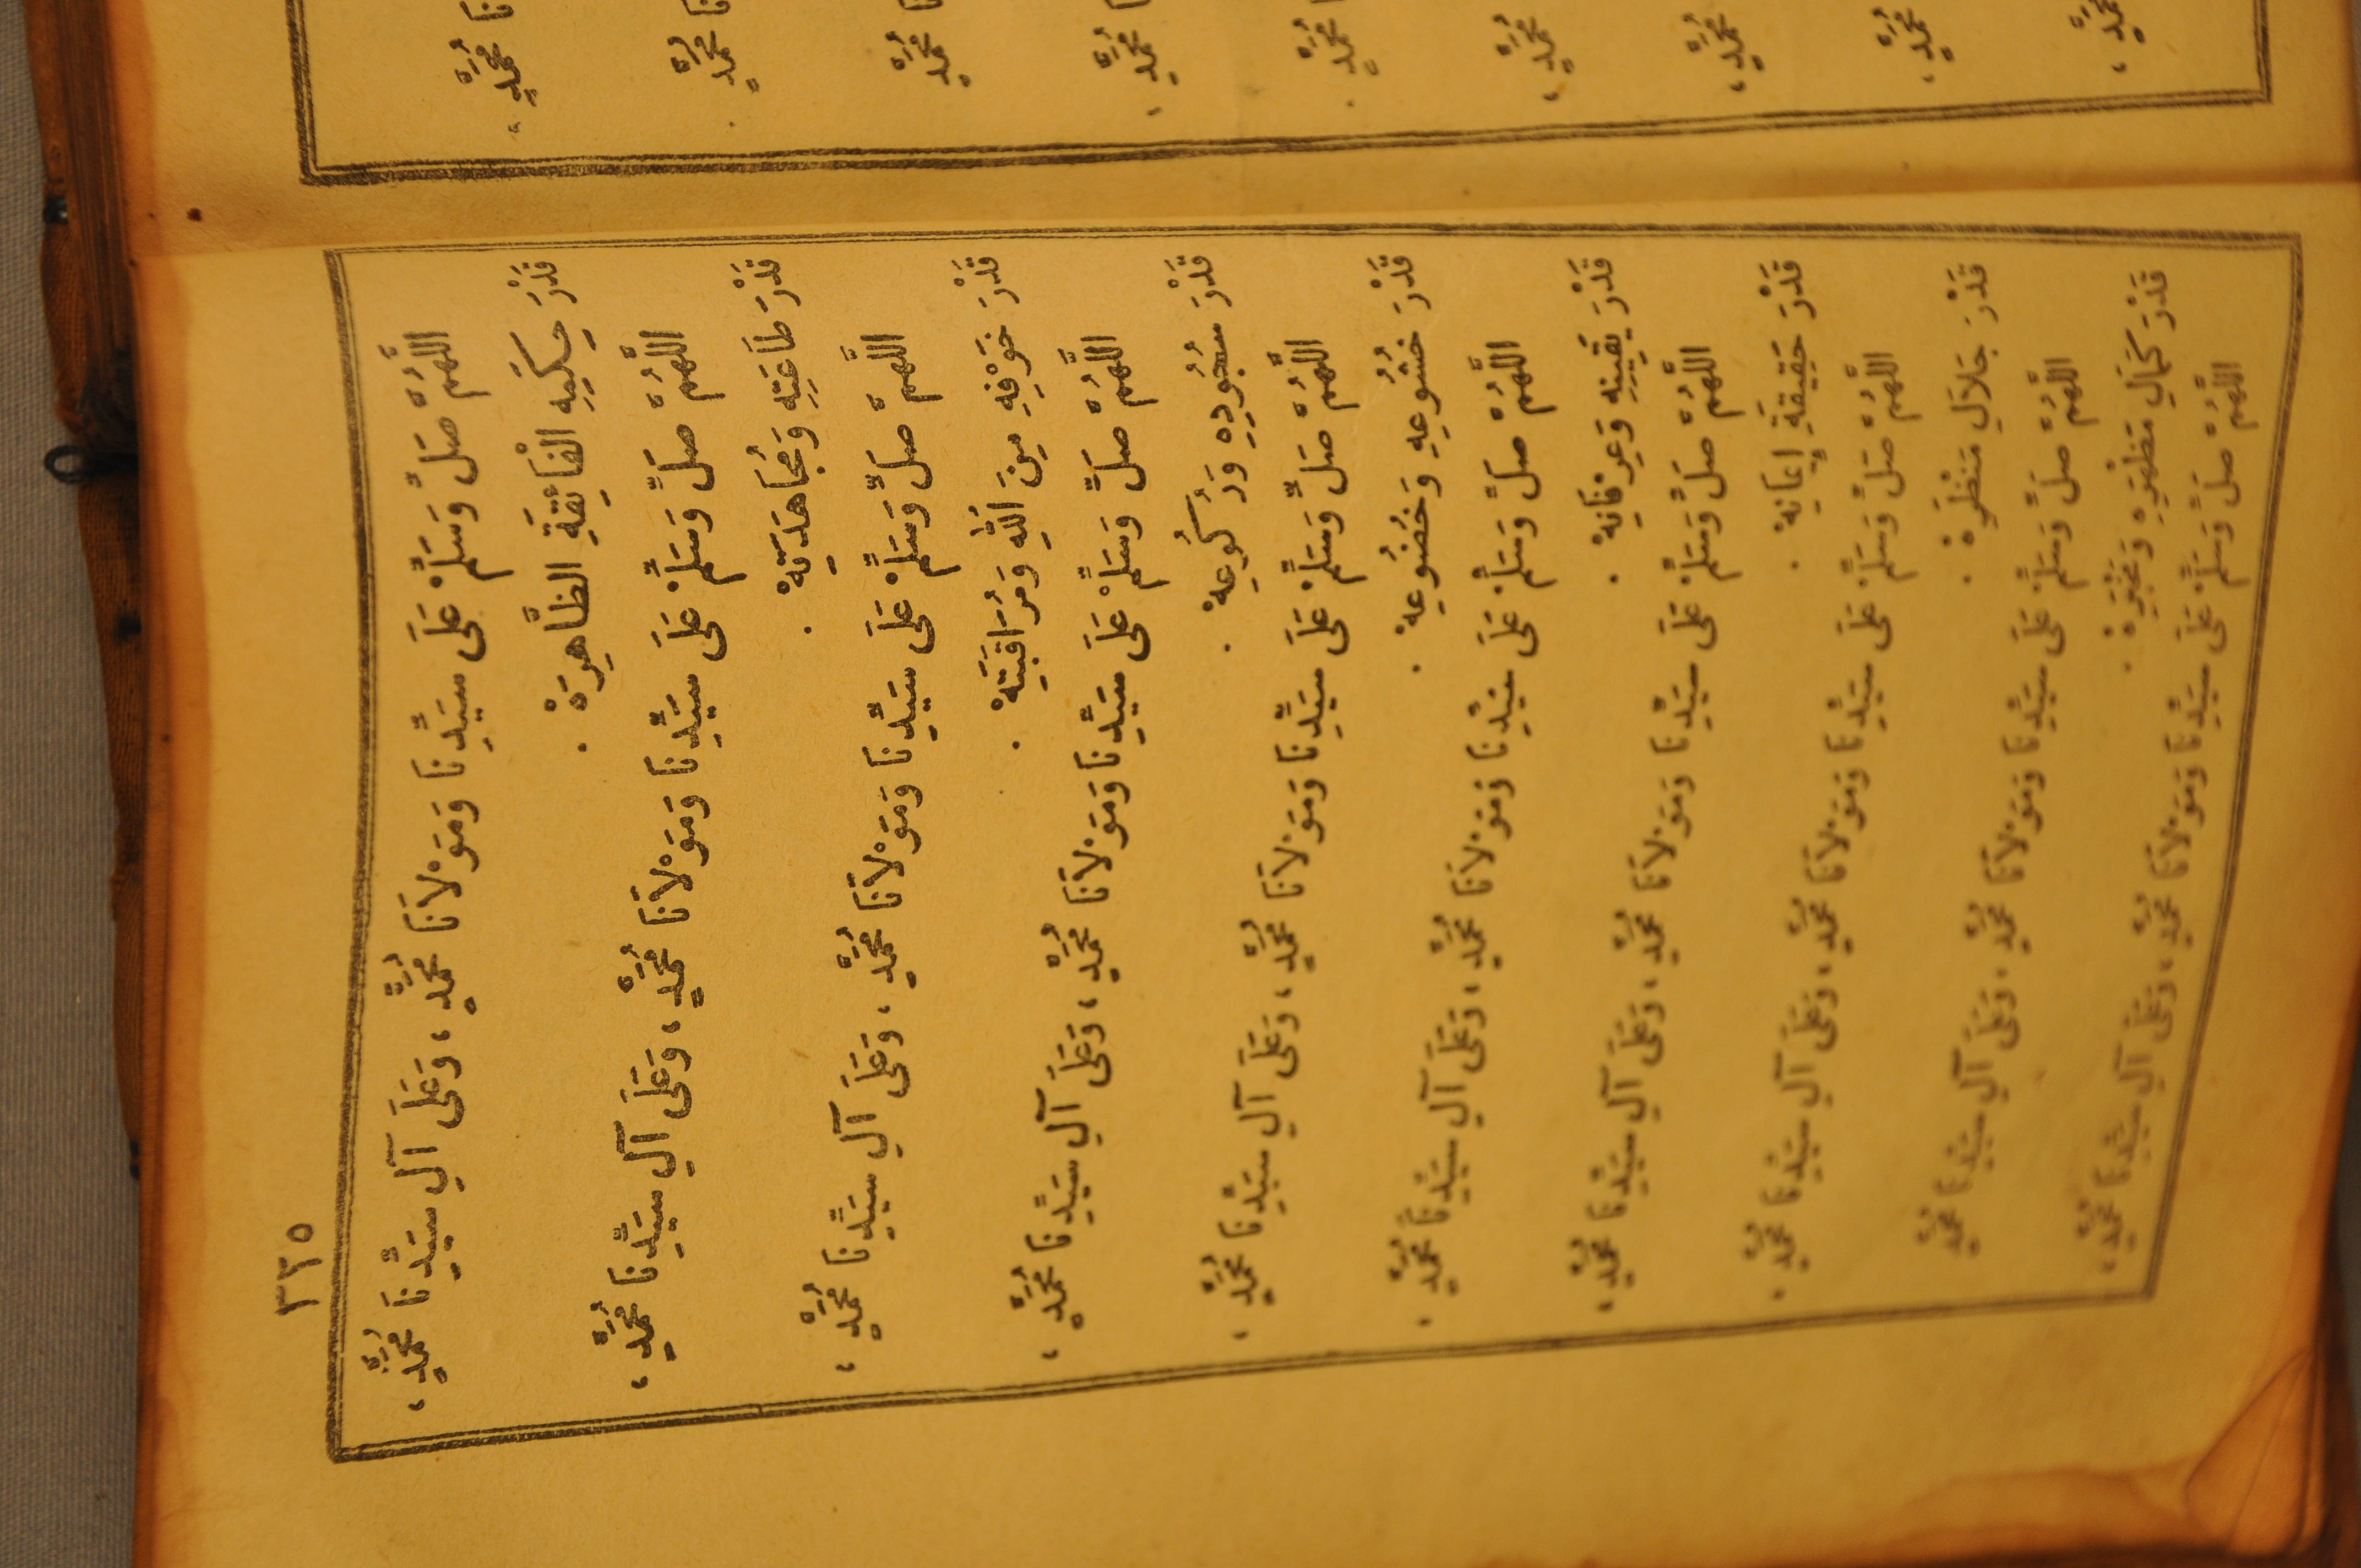 نَا مُحَمَّدٍ ،
نَا مُحَمَّدٍ .
نَا مُحَمَّدٍ
مُحَمَّدٍ ،
مُحَمَّدٍ .
مُحَمَّدٍ ،
مُحَمَّدٍ ،
مُحَمَّدٍ ،
مُحَمَّدٍ ،
٣٢٥
اللَّهُمَّ صَلِّ وَسَلِّمْ عَلَى سَيِّدِنَا وَمَوْلَانَا مُحَمَّدٍ ، وَعَلَى آلِ سَيِّدِنَا مُحَمَّدٍ ،
قَدْرَ حِكَمِهِ الْفَائِقَةِ الظَّاهِرَهْ .
اللَّهُمَّ صَلِّ وَسَلِّمْ عَلَى سَيِّدِنَا وَمَوْلَانَا مُحَمَّدٍ ، وَعَلَى آلِ سَيِّدِنَا مُحَمَّدٍ ،
قَدْرَ طَاعَتِهِ وَمُجَاهَدَتِهْ .
اللَّهُمَّ صَلِّ وَسَلِّمْ عَلَى سَيِّدِنَا وَمَوْلَانَا مُحَمَّدٍ ، وَعَلَى آلِ سَيِّدِنَا مُحَمَّدٍ ،
قَدْرَ خَوْفِهِ مِنَ اللهِ وَمُرَاقَبَتِهْ .
اللَّهُمَّ صَلِّ وَسَلِّمْ عَلَى سَيِّدِنَا وَمَوْلَانَا مُحَمَّدٍ ، وَعَلَى آلِ سَيِّدِنَا مُحَمَّدٍ ،
قَدْرَ سُجُودِهِ وَرُكُوعِهْ .
اللَّهُمَّ صَلِّ وَسَلِّمْ عَلَى سَيِّدِنَا وَمَوْلَانَا مُحَمَّدٍ ، وَعَلَى آلِ سَيِّدِنَا مُحَمَّدٍ ،
قَدْرَ خُشُوعِهِ وَخُضُوعِهْ .
اللَّهُمَّ صَلِّ وَسَلِّمْ عَلَى سَيِّدِنَا وَمَوْلَانَا مُحَمَّدٍ ، وَعَلَى آلِ سَيِّدِنَا مُحَمَّدٍ ،
قَدْرَ يَقِينِهِ وَعِرْفَانِهْ .
اللَّهُمَّ صَلِّ وَسَلِّمْ عَلَى سَيِّدِنَا وَمَوْلَانَا مُحَمَّدٍ ، وَعَلَى آلِ سَيِّدِنَا مُحَمَّدٍ ،
قَدْرَ حَقِيقَةِ إِيمَانِهْ .
اللَّهُمَّ صَلِّ وَسَلِّمْ عَلَى سَيِّدِنَا وَمَوْلَانَا مُحَمَّدٍ ، وَعَلَى آلِ سَيِّدِنَا مُحَمَّدٍ ،
قَدْرَ جَلَالِ مَنْظَرِهْ .
اللَّهُمَّ صَلِّ وَسَلِّمْ عَلَى سَيِّدِنَا وَمَوْلَانَا مُحَمَّدٍ ، وَعَلَى آلِ سَيِّدِنَا مُحَمَّدٍ
قَدْرَ كَمَالِ مَظْهَرِهِ وَمَخْبَرِهْ .
اللَّهُمَّ صَلِّ وَسَلِّمْ عَلَى سَيِّدِنَا وَمَوْلَانَا مُحَمَّدٍ ، وَعَلَى آلِ سَيِّدِنَا مُحَمَّدٍ ،